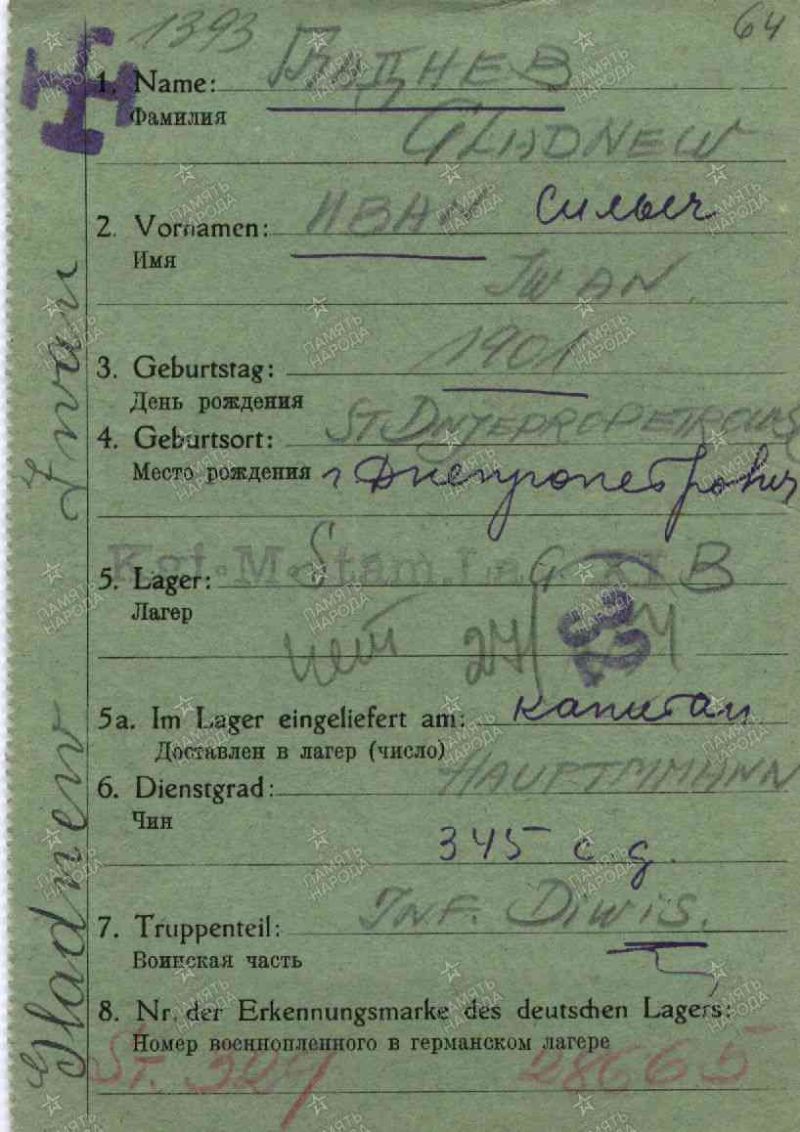 1393
64
1. Name:
Фамилия
GLADNEW
2. Vornamen: ИВАН Сильич
Имя
IWAN
3. Geburtstag: 1901
День рождения
4. Geburtsort: ST DNJEPROPETROWSK
Место рождения г Днепропетровск
Kgf.-M.-Stam.Lag. XI B
5. Lager:
Лагер
5a. Im Lager eingeliefert am: капитан
Доставлен в лагер (число)
6. Dienstgrad: HAUPTMMANN
Чин
345 с.д.
7. Truppenteil: INF. DIWIS.
Воинская часть
8. Nr. der Erkennungsmarke des deutschen Lagers:
Номер военнопленного в германском лагере
St. 327 28665
Gladnew Iwan
ПАМЯТЬ НАРОДА